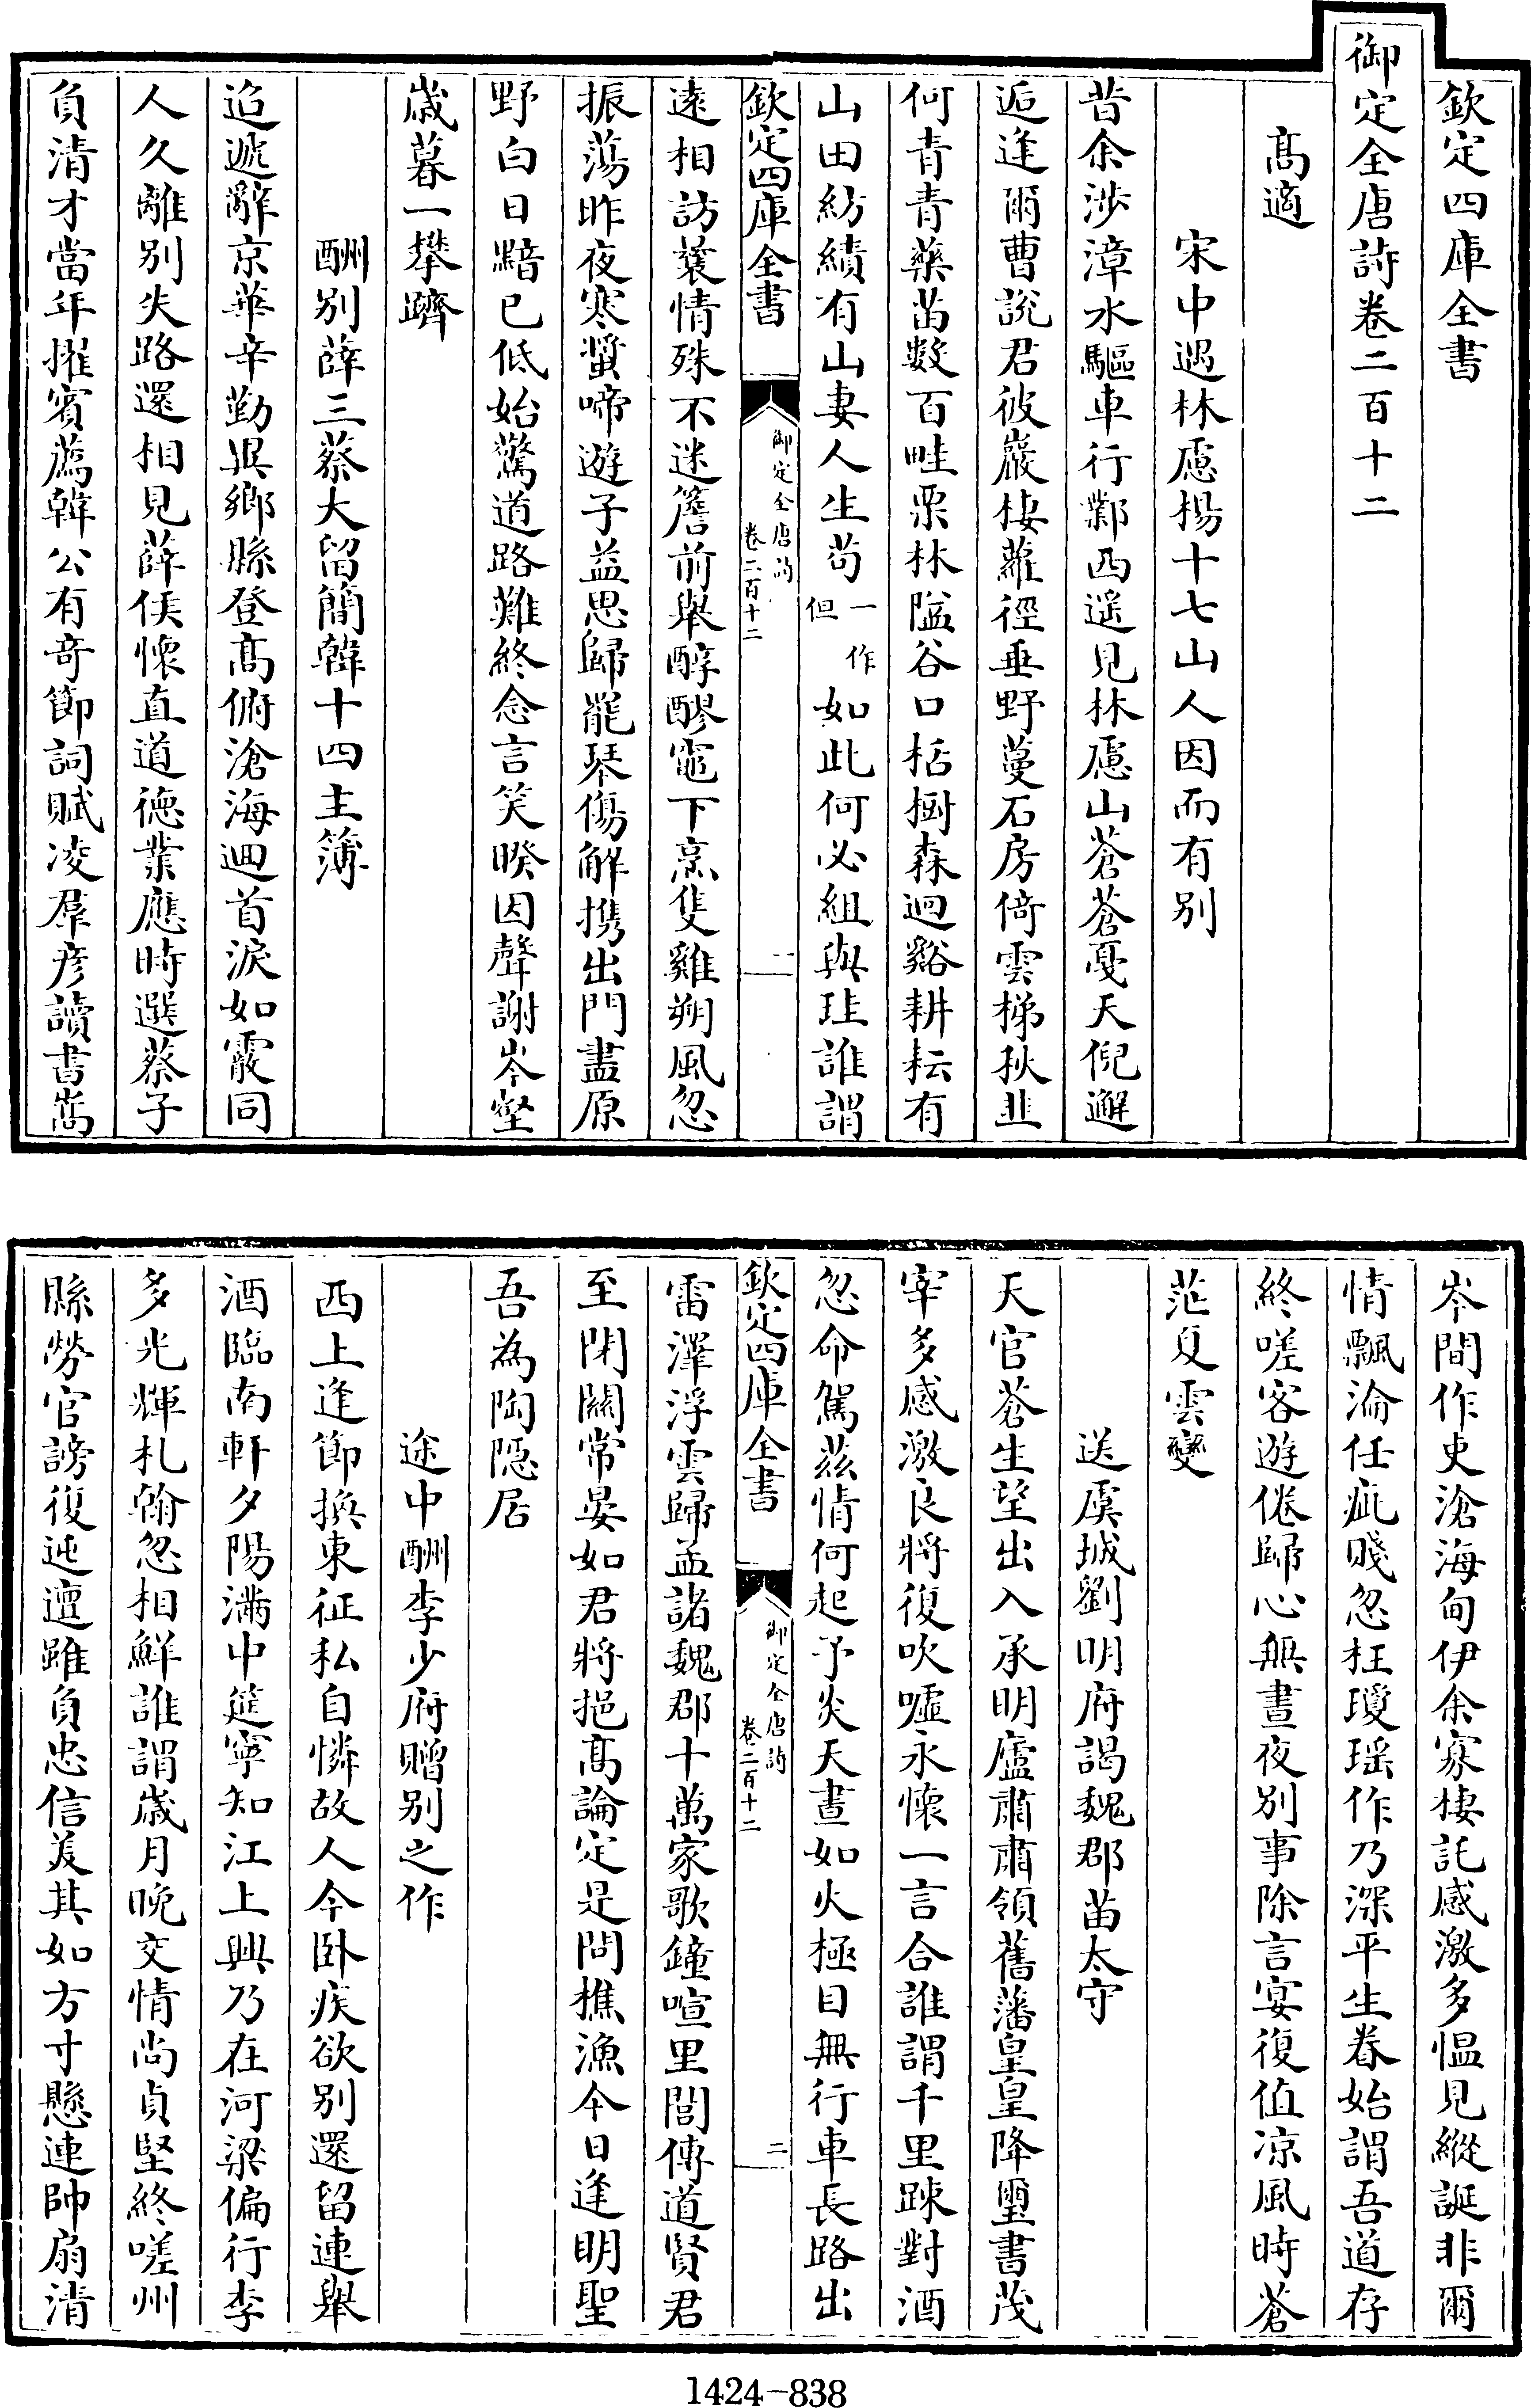 欽定四庫全書
御定全唐詩卷二百十二
高適
宋中遇林慮楊十七山人因而有別
昔余涉漳水驅車行鄴西遥見林慮山蒼蒼戞天倪邂
逅逢爾曹說君彼巖棲蘿徑垂野蔓石房倚雲梯秋韭
何青青藥苗數百畦栗林隘谷口栝樹森迴谿耕耘有
山田紡績有山妻人生苟一作但如此何必組與珪誰謂
欽定四庫全書
御定全唐詩
卷二百十二
一
遠相訪曩情殊不迷簷前舉醇醪竈下烹隻雞朔風忽
振蕩昨夜寒螿啼遊子益思歸罷琴傷解攜出門盡原
野白日黯已低始驚道路難終念言笑暌因聲謝岑壑
歲暮一攀躋
酬別薛三蔡大留簡韓十四主簿
迢遞辭京華辛勤異鄉縣登高俯滄海迴首淚如霰同
人久離別失路還相見薛侯懷直道德業應時選蔡子
負清才當年擢賓薦韓公有奇節詞賦凌羣彦讀書嵩
岑間作吏滄海甸伊余寡棲託感激多愠見縱誕非爾
情飄淪任疵賤忽枉瓊瑶作乃深平生眷始謂吾道存
終嗟客遊倦歸心無晝夜別事除言宴復值凉風時蒼
茫夏雲變
送虞城劉明府謁魏郡苗太守
天官蒼生望出入承明廬肅肅領舊藩皇皇降璽書茂
宰多感激良將復吹噓永懷一言合誰謂千里疎對酒
忽命駕兹情何起予炎天晝如火極目無行車長路出
欽定四庫全書
御定全唐詩
卷二百十二
二
雷澤浮雲歸孟諸魏郡十萬家歌鐘喧里閭傳道賢君
至閉關常晏如君將挹高論定是問樵漁今日逢明聖
吾為陶隠居
途中酬李少府贈別之作
西上逢節換東征私自憐故人今卧疾欲別還留連舉
酒臨南軒夕陽滿中筵寧知江上興乃在河梁偏行李
多光輝札翰忽相鮮誰謂歲月晚交情尚貞堅終嗟州
縣勞官謗復迍邅雖負忠信美其如方寸懸連帥扇清
1424-838